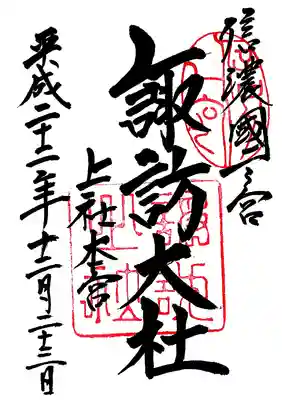 信濃國一之宮
諏訪大社
上社本宮
平成二十二年十二月二十三日